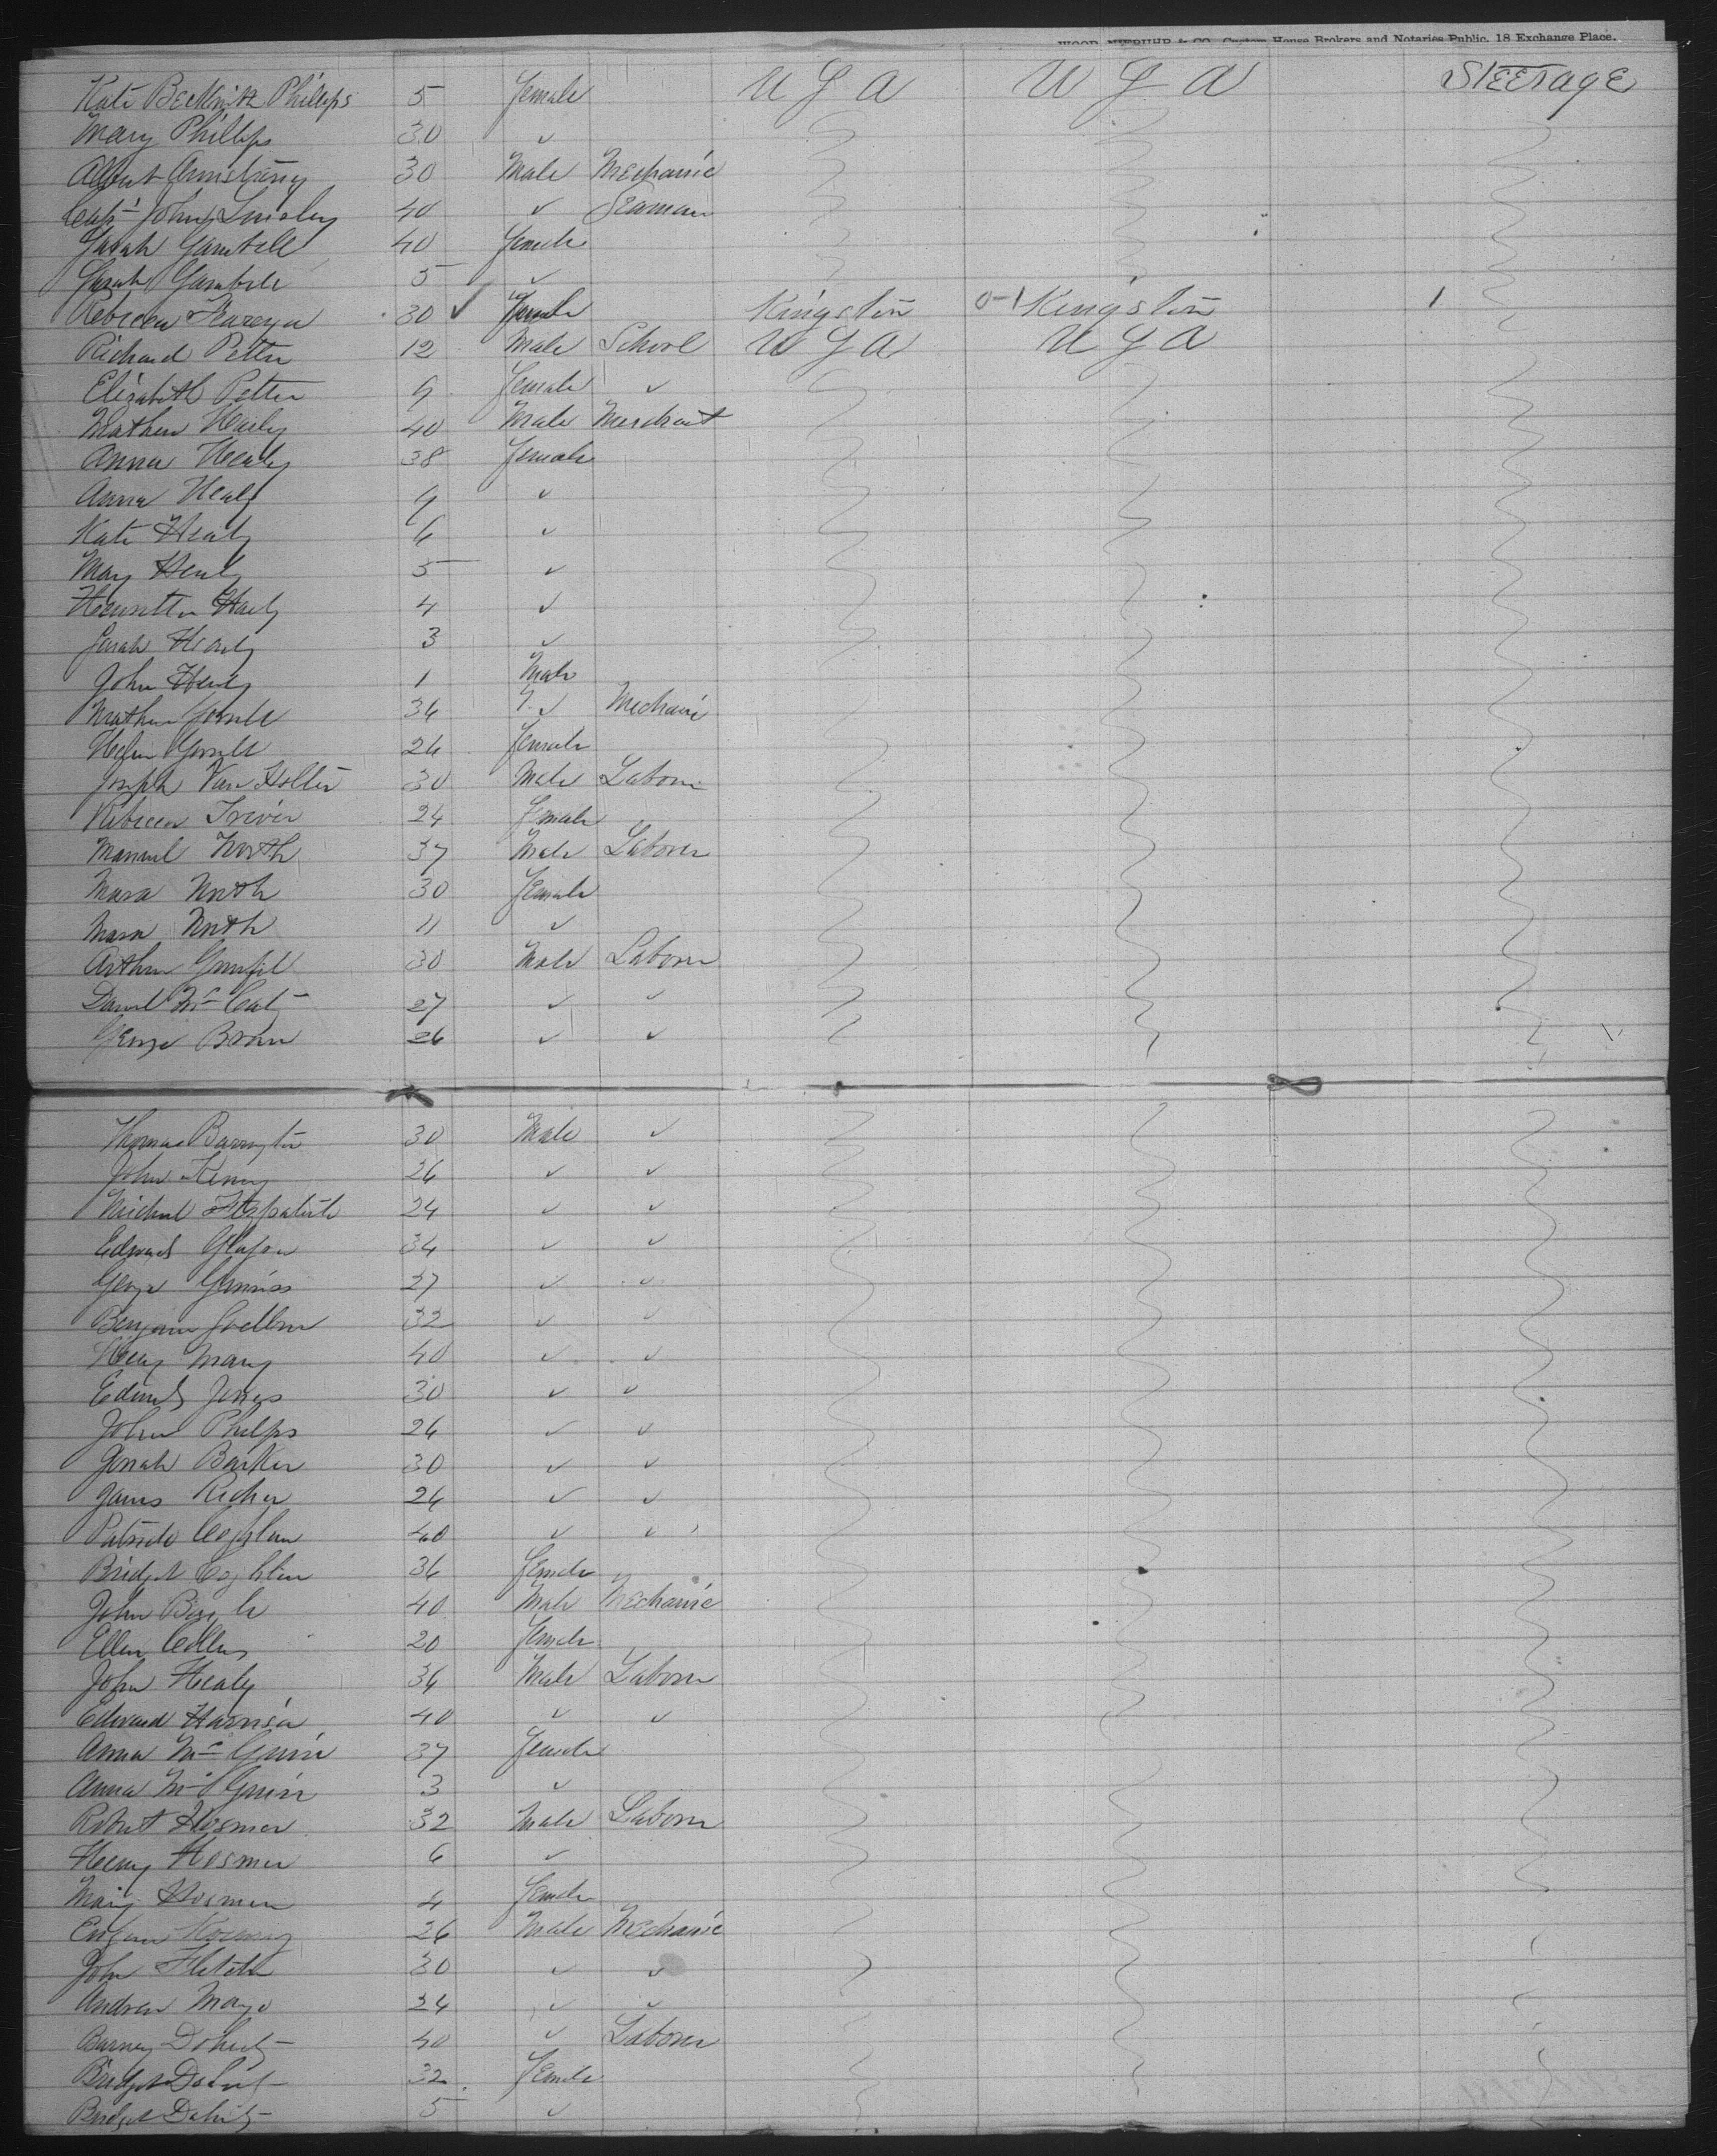 House Brokers and Notaries Public, 18 Exchange Place.
Kate Beckwith Phillips 5 Female U S A U S A Steerage
Mary Phillips 30 ✓
Albert Armstrong 30 Male Mechanic
Capt John 40 ✓ Seaman
Sarah Gambell 40 Female
Sarah Gambell 5 ✓
Rebecca 30 ✓ Female Kingston 0-1 Kingston 1
Richard Petter 12 Male School U S A U S A
Elizabeth Petter 9 Female ✓
Mathew Healy 40 Male Merchant
Anna Healy 38 Female
Anna Healy 9 ✓
Kate Healy 6 ✓
May Healy 5 ✓
Henrietta Healy 4 ✓
Sarah Healy 3 ✓
John Healy 1 Male
Mathew 36 ✓ Mechanic
Helen 26 Female
Joseph Van Holten 30 Male Laborer
Rebecca Trevor 24 Female
Manuel North 37 Male Laborer
Mara North 30 Female
Mara North 11 ✓
Arthur 30 Male Laborer
Daniel McCarty 27 ✓ ✓
George Brown 26 ✓ ✓
Thomas Barrington 30 Male ✓
John Kenny 26 ✓ ✓
Michael Fitzpatrick 24 ✓ ✓
Edward 34 ✓ ✓
George 27 ✓ ✓
Benjamin 32 ✓ ✓
Henry 40 ✓ ✓
Edward Jones 30 ✓ ✓
John Phelps 26 ✓ ✓
Jonah Barker 30 ✓ ✓
James Richer 26 ✓ ✓
Patrick Coghlan 40 ✓ ✓
Bridget Coghlan 36 Female
John 40 Male Mechanic
Ellen Collins 20 Female
John Healy 36 Male Laborer
Edward Harrison 40 ✓ ✓
Anna McGuire 37 Female
Anna McGuire 3 ✓
Robert Hosmer 32 Male Laborer
Henry Hosmer 6 ✓
Mary Hosmer 4 Female
26 Male Mechanic
John Fletcher 30 ✓ ✓
Andrew Mayo 24 ✓ ✓
Barney Doherty 40 ✓ Laborer
Bridget Doherty 32 Female
Bridget Doherty 5 ✓